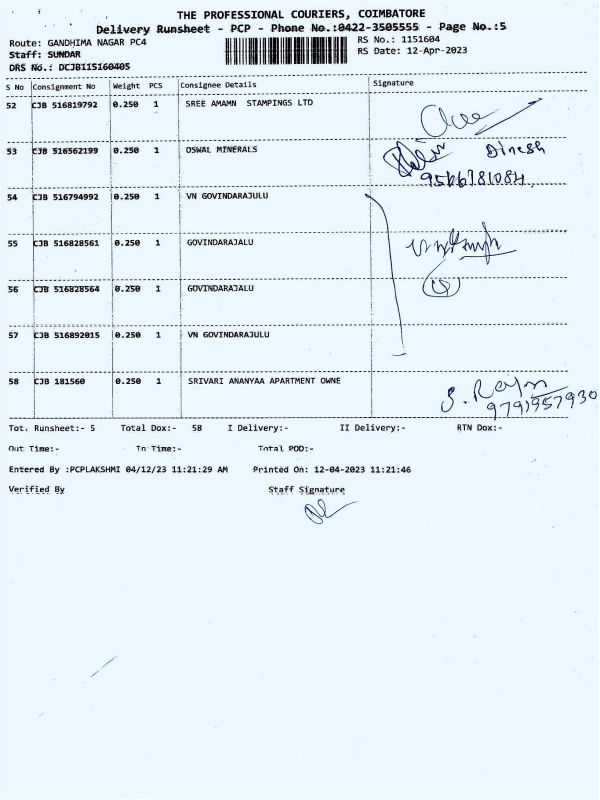 THE PROFESSIONAL COURIERS, COIMBATORE
Delivery Runsheet - PCP - Phone No.:0422-3505555 - Page No.:5
Route: GANDHIMA NAGAR PC4
RS No.: 1151604
Staff: SUNDAR
RS Date: 12-Apr-2023
DRS No.: DCJB115160405
S No Consignment No Weight PCS Consignee Details Signature
52 CJB 516819792 0.250 1 SREE AMAMN STAMPINGS LTD
53 CJB 516562199 0.250 1 OSWAL MINERALS
Dinesh
54 CJB 516794992 0.250 1 VN GOVINDARAJULU
55 CJB 516828561 0.250 1 GOVINDARAJALU
56 CJB 516828564 0.250 1 GOVINDARAJALU
57 CJB 516892015 0.250 1 VN GOVINDARAJULU
58 CJB 181560 0.250 1 SRIVARI ANANYAA APARTMENT OWNE
9791957930
Tot. Runsheet:- 5 Total Dox:- 58 I Delivery:- II Delivery:- RTN Dox:-
Out Time:- In Time:- Total POD:-
Entered By :PCPLAKSHMI 04/12/23 11:21:29 AM Printed On: 12-04-2023 11:21:46
Verified By Staff Signature